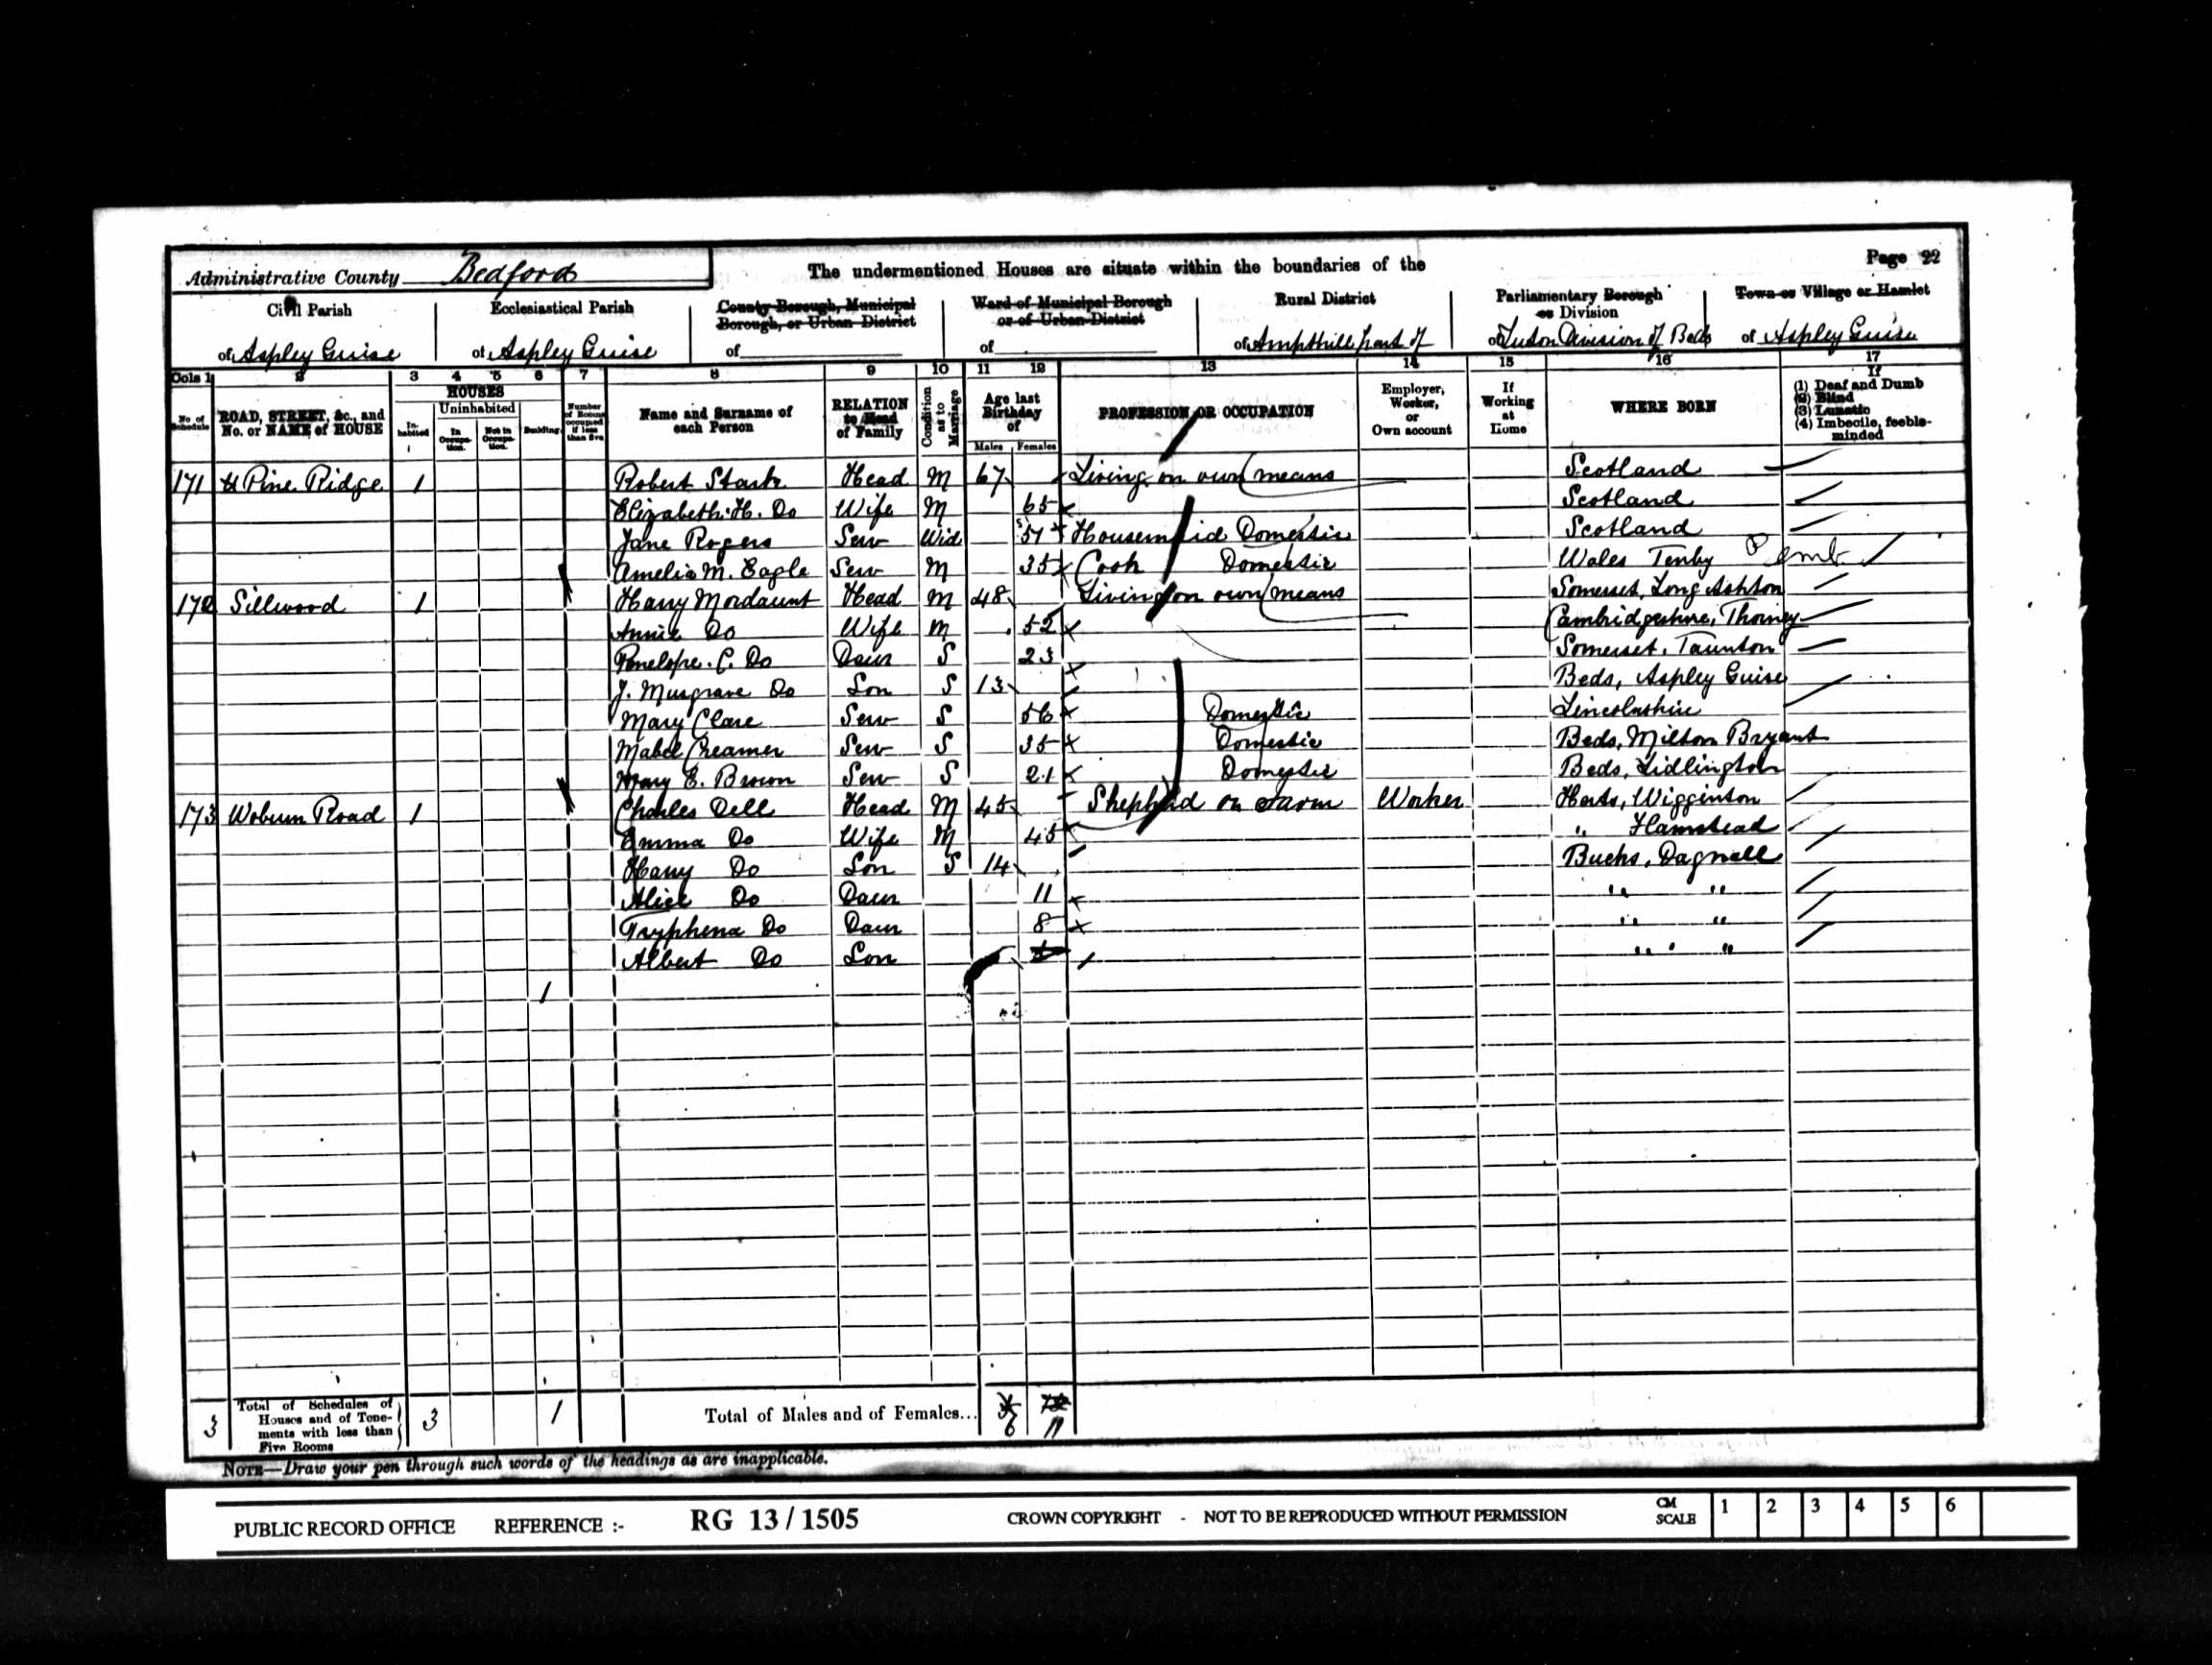 Administrative County Bedford The undermentioned Houses are situate within the boundaries of the Page 22
Civil Parish Ecclesiastical Parish County Borough, Municipal Borough, or Urban District Ward of Municipal Borough or of Urban District Rural District Parliamentary Borough or Division Town or Village or Hamlet
of Aspley Guise of Aspley Guise of of of Ampthill part of of Luton Division of Beds of Aspley Guise
Cols 1 2 3 4 5 6 7 8 9 10 11 12 13 14 15 16 17
No. of Schedule ROAD, STREET, &c., and No. or NAME of HOUSE HOUSES Inhabited Uninhabited In Occupation. Not in Occupation. Building Number of Rooms occupied if less than five Name and Surname of each Person RELATION to Head of Family Condition as to Marriage Age last Birthday of Males Females PROFESSION OR OCCUPATION Employer, Worker, or Own account If Working at Home WHERE BORN If (1) Deaf and Dumb (2) Blind (3) Lunatic (4) Imbecile, feeble-minded
171 Pine Ridge 1 Robert Stark Head M 67 Living on own means Scotland
Elizabeth H. Do Wife M 65 Scotland
Jane Rogers Serv Wid 57 Housemaid Domestic Scotland
Amelia M. Eagle Serv M 35 Cook Domestic Wales Tenby Pemb
172 Sillwood 1 Harry Mordaunt Head M 48 Living on own means Somerset, Long Ashton
Annie Do Wife M 52 Cambridgeshire, Thorney
Penelope. C. Do Daur S 23 Somerset, Taunton
J. Musgrave Do Son S 13 Beds, Aspley Guise
Mary Clare Serv S 56 Domestic Lincolnshire
Mabel Creamer Serv S 35 Domestic Beds, Milton Bryant
Mary E. Brown Serv S 21 Domestic Beds, Lidlington
173 Woburn Road 1 Charles Dell Head M 45 Shepherd on Farm Worker Herts, Wigginton
Emma Do Wife M 45 " Hamstead
Harry Do Son S 14 Bucks, Dagnell
Alice Do Daur 11 " "
Tryphena Do Daur 8 " "
Albert Do Son " "
1
3 Total of Schedules of Houses and of Tenements with less than Five Rooms 3 1 Total of Males and of Females... 6 11
NOTE—Draw your pen through such words of the headings as are inapplicable.
PUBLIC RECORD OFFICE REFERENCE :- RG 13 / 1505 CROWN COPYRIGHT - NOT TO BE REPRODUCED WITHOUT PERMISSION CM SCALE 1 2 3 4 5 6